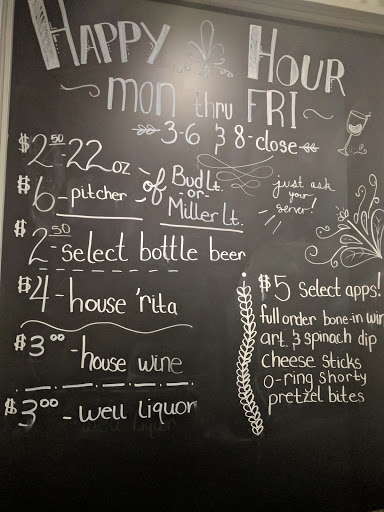 HAPPY HOUR
mon thru FRI
3-6 & 8-close
$2.50-22oz
$6-pitcher
of Bud Lt.
-or-
Miller Lt.
just ask
your
server!
$2.50-select bottle beer
$4-house 'rita
$3.00-house wine
$3.00-well liquor
$5 select apps!
full order bone-in
art. & spinach dip
cheese sticks
o-ring shorty
pretzel bites